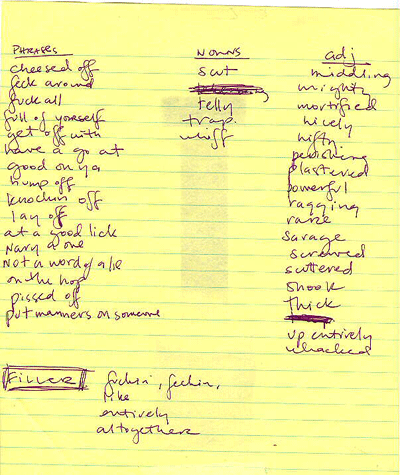 PHRASES
cheesed off
feck around
fuck all
full of yourself
get off with
have a go at
good on ya
hump off
knockin off
lay off
at a good lick
Nary a one
Not a word of a lie
on the hop
pissed off
put manners on someone
NOUNS
scut
telly
trap.
whiff
adj
middling
mighty
mortified
nicely
nifty
perishing
plastered
powerful
ragging
rare
savage
screwed
scuttered
shook
thick
up entirely
whacked
FILLER
fuckin, feckin,
like
entirely
altogether